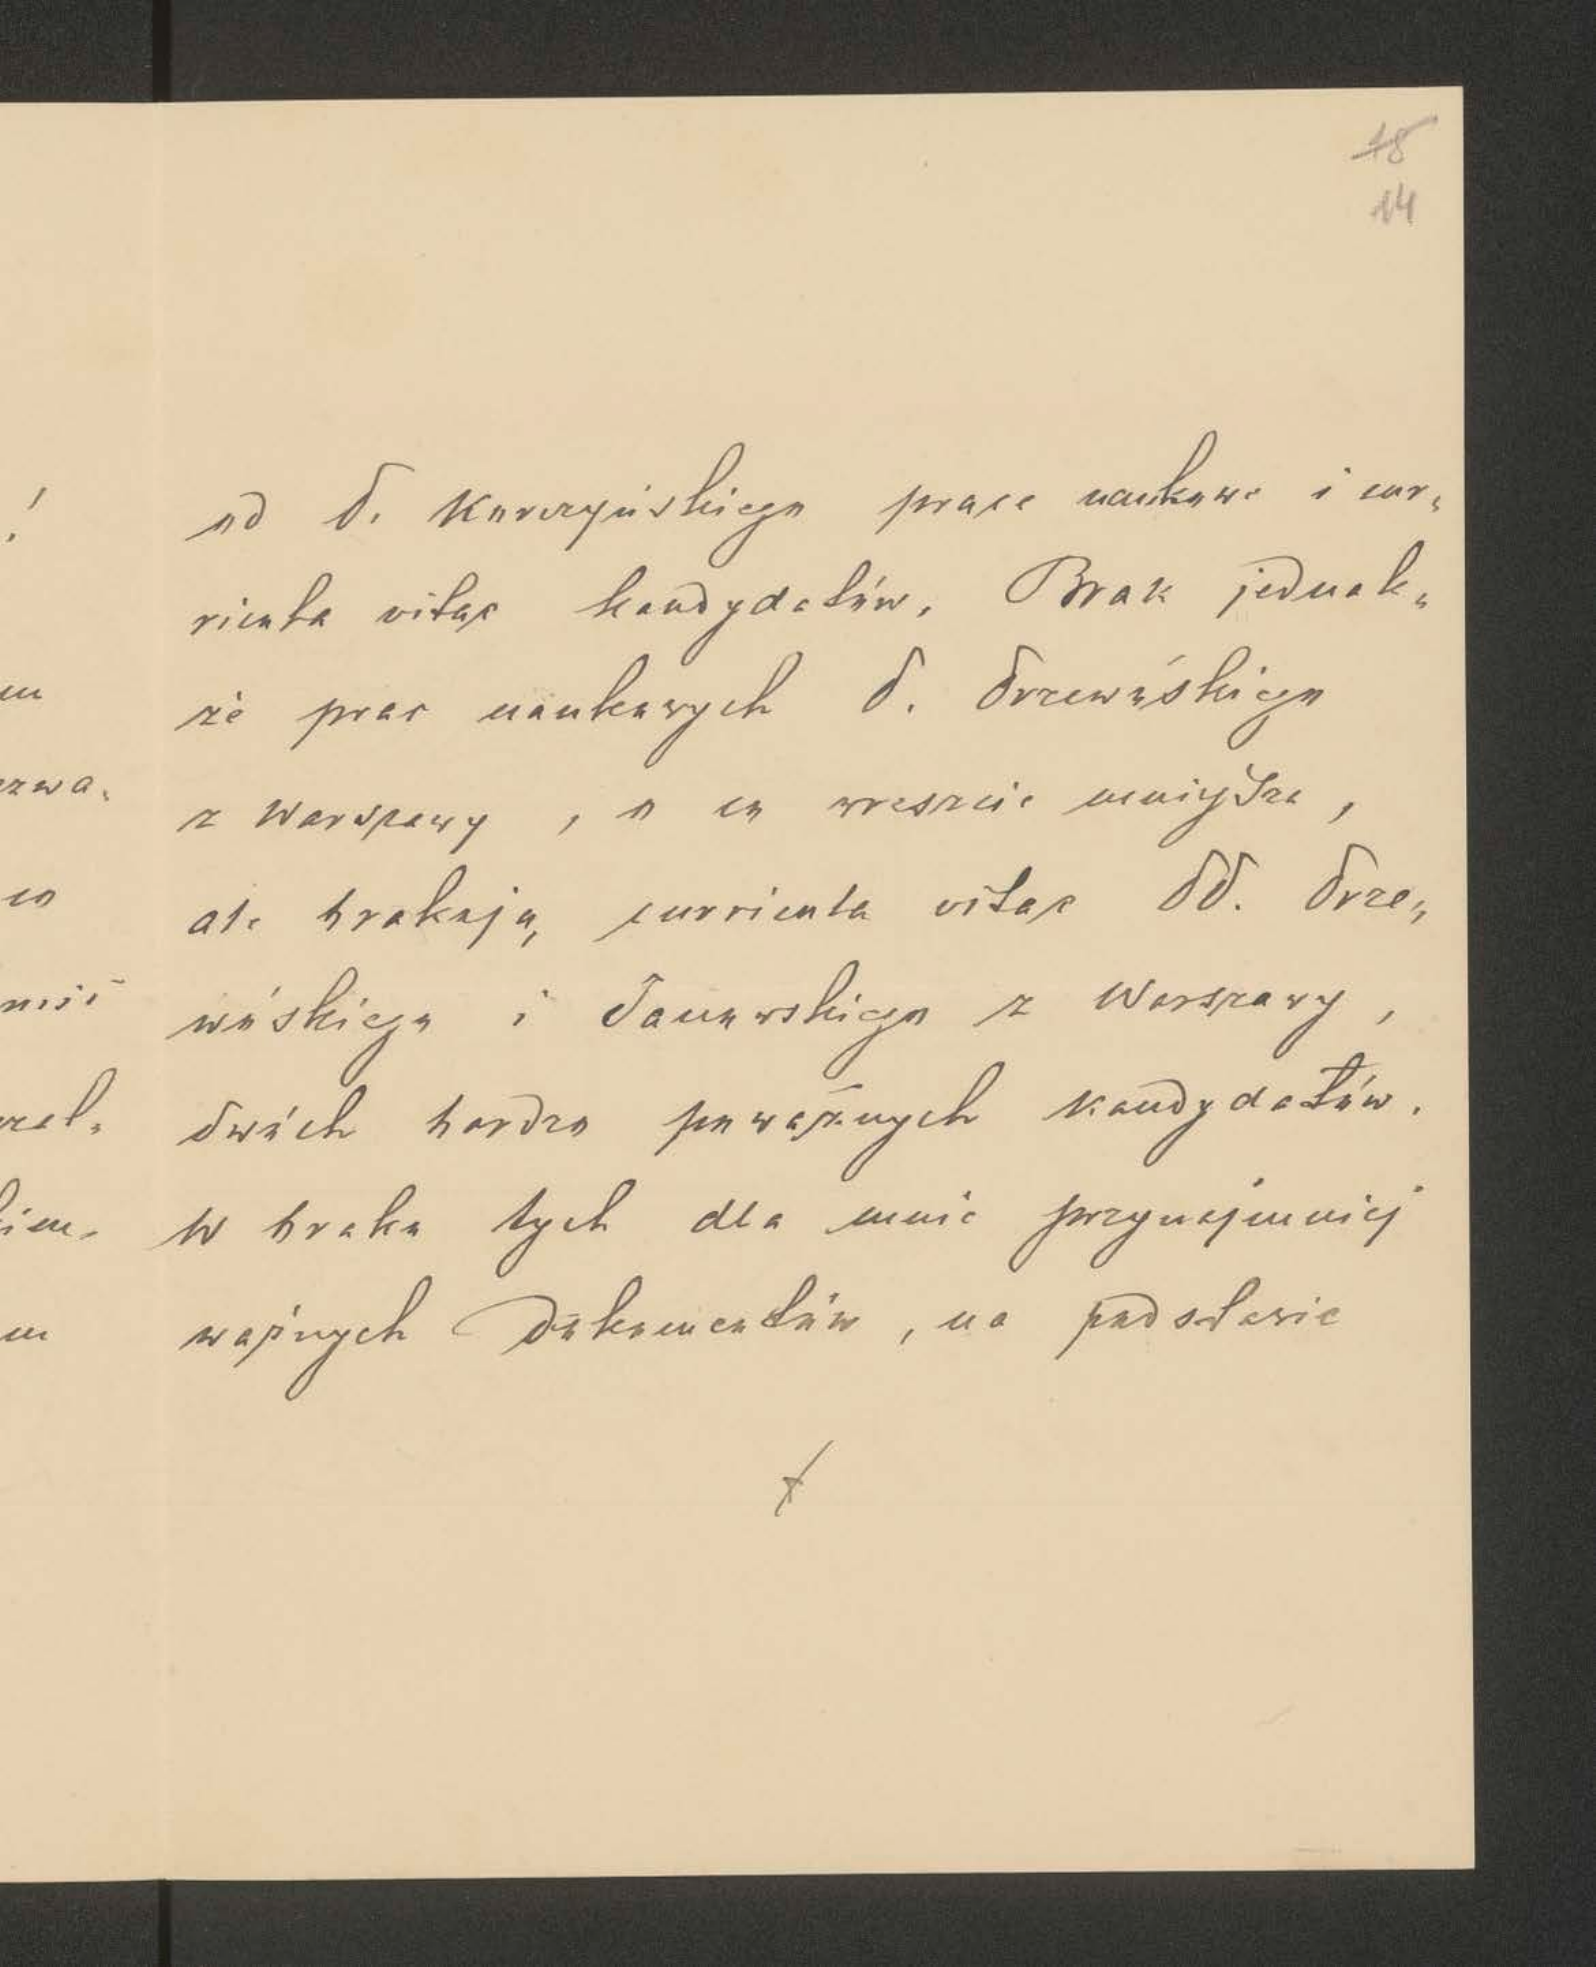 18
14
od D. Korczyńskiego prace naukowe i cur„
ricula vitae kandydatów. Brak jednak„
że prac naukowych D. Drzewńskiego
z Warszawy, o co wreszcie mniejsza,
ale brakują curricula vitae DD. Drze„
wńskiego i Janowskiego z Warszawy,
dwóch bardzo poważnych kandydatów.
W braku tych dla mnie przynajmniej
ważnych dokumentów, na podstawie